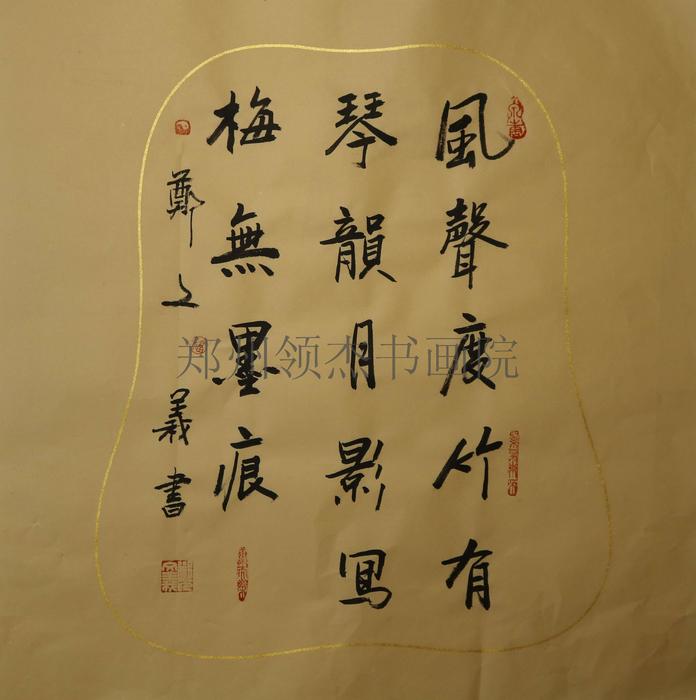 風聲度竹有
琴韻月影寫
梅無墨痕
鄭之義書
郑州领杰书画院